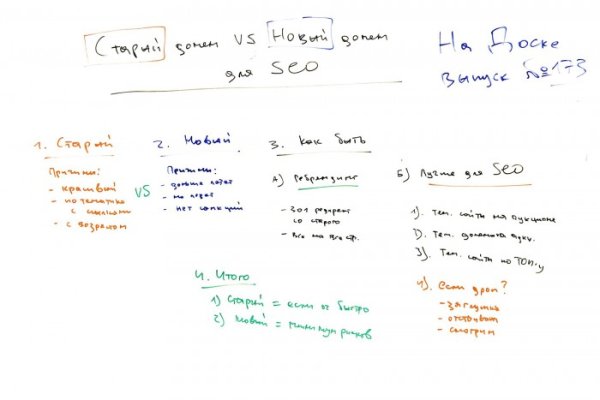 Старый домен VS Новый домен
для SEO
На Доске
выпуск №173
1. Старый
Причины:
- красивый
- по тематике
с ссылками
- с возрастом
VS
2. Новый
Причины:
- дольше
- нет санкций
3. Как быть
А) Ребрендинг
- 301 редирект
со старого
- Все на все стр.
Б) Лучше для SEO
1). Тем. сайты на аукционе
2). Тем. домена
3). Тем. сайты по ТОП-у
4). Если дроп?
- заглушка
- отстаивать
- смотрим
4. Итого
1) Старый = если ок быстро
2) Новый = минимум рисков